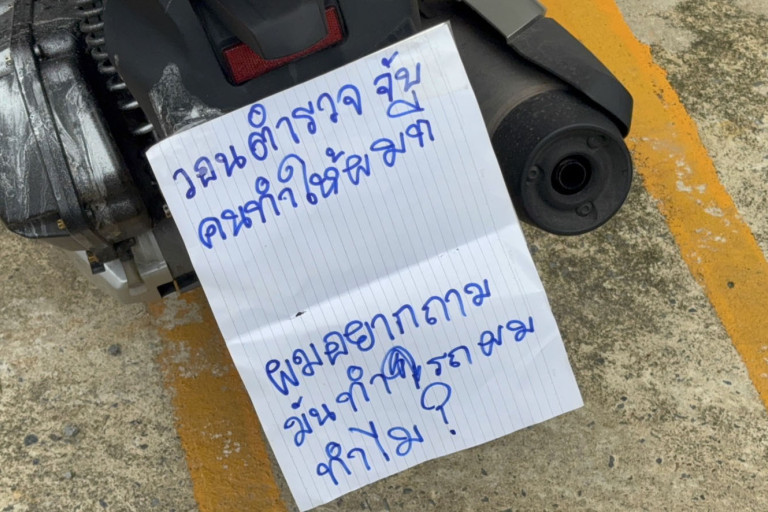 วอนตำรวจ จับ
คนทำให้ผมที
ผมอยากถาม
มันทำ รถผม
ทำไม?